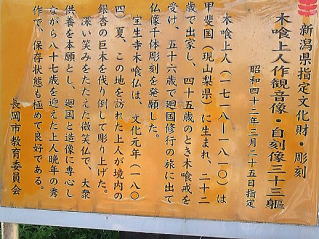 新潟県指定文化財・彫刻
木喰上人作観音像・自刻像三十三躯
昭和四十二年三月二十五日指定
木喰上人(一七一八―一八一〇)は
甲斐国(現山梨県)に生まれ、二十二
歳で出家し、四十五歳のとき木喰戒を
受け、五十六歳で廻国修行の旅に出て
仏像千体彫刻を発願した。
宝生寺木喰仏は、文化元年(一八〇
四)夏、この地を訪れた上人が境内の
銀杏の巨木を伐り倒して彫り上げた。
深い笑みをたたえた微笑仏で、大衆
供養を本願とし、廻国と造像に専心し
ながら八十七歳を迎えた上人晩年の秀
作で、保存状態も極めて良好である。
長岡市教育委員会